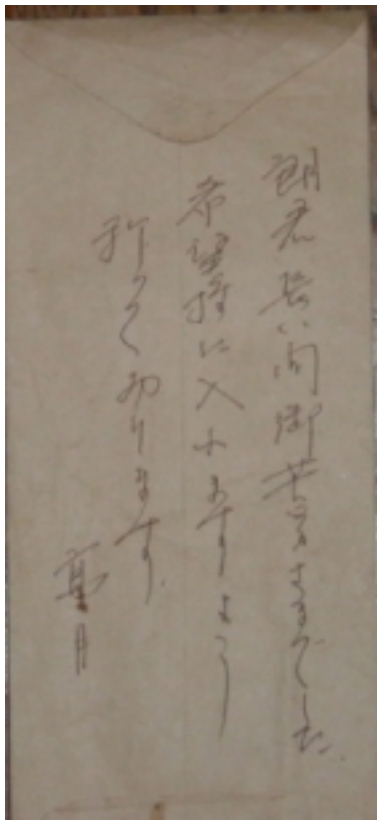 朗君長い間御苦労さまでした
希望校に入れますよう
祈つて おります
高月